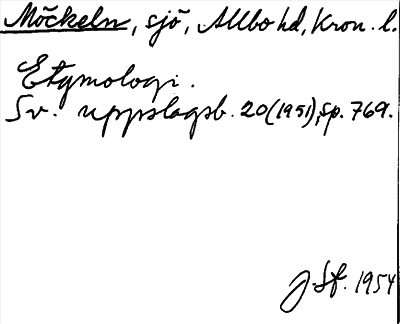 Möckeln, sjö, Allbo hd, Kron. l.
Etymologi.
Sv. uppslagsb. 20(1951), sp. 769.
J. Sf. 1954